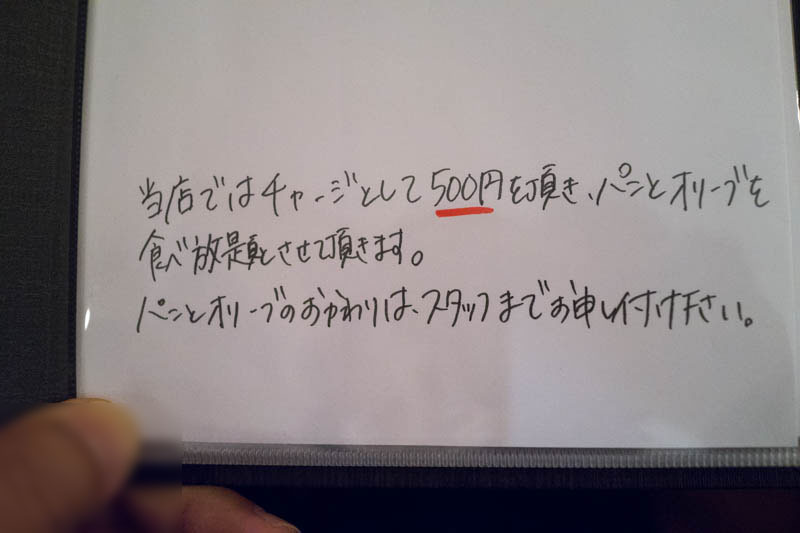 当店ではチャージとして500円を頂き、パンとオリーブを
食べ放題とさせて頂きます。
パンとオリーブのおかわりは、スタッフまでお申し付け下さい。